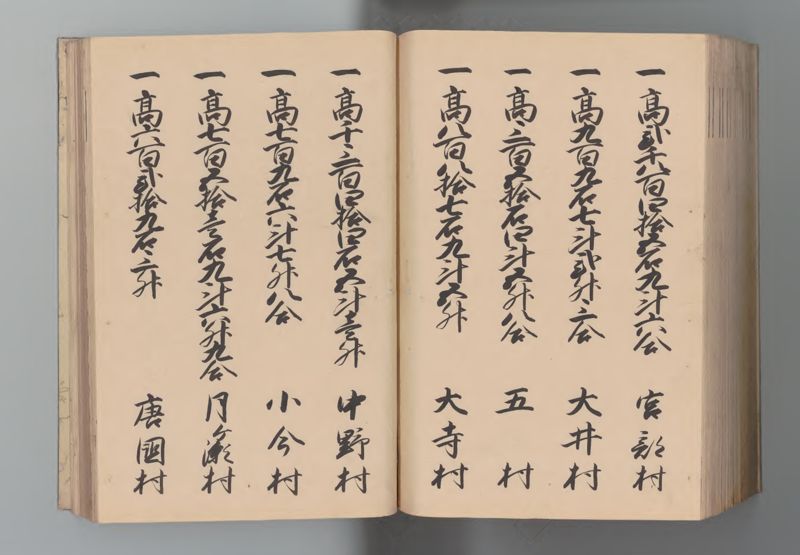 一高弐千八百四拾五石九斗六合 宮部村
一高九百九石七斗弐升三合 大井村
一高三百五拾石四斗五升八合 五村
一高八百八拾七石九斗五升 大寺村
一高千三百四拾四石五斗壱升 中野村
一高七百九石六斗七升八合 小今村
一高七百五拾壱石九斗六升九合 月ヶ瀬村
一高六百弐拾九石三升 唐国村